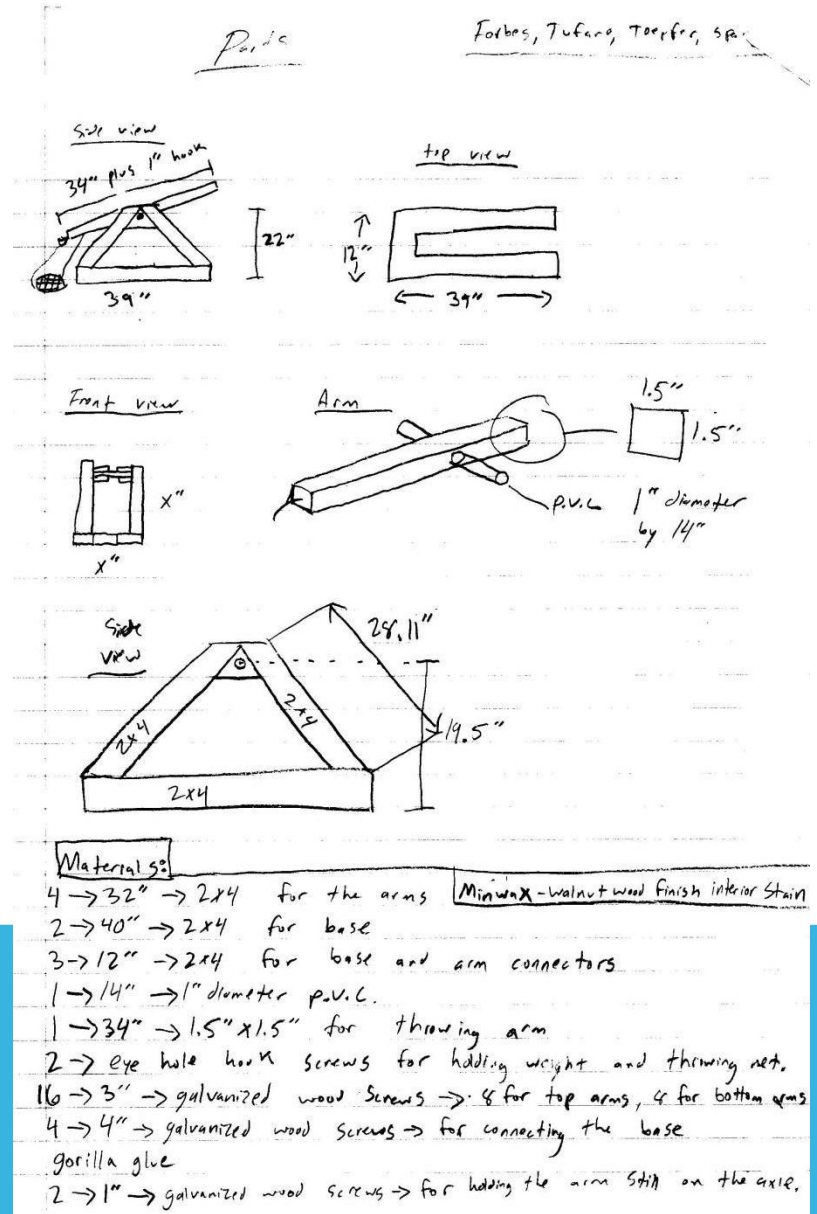 Parts
Forbes, Tufano, Toepfer,
Side view
34" plus 1" hook
22"
39"
top view
12"
39"
Front view
x"
x"
Arm
1.5"
1.5"
P.V.C
1" diameter
by 14"
Side
view
28.11"
19.5"
2x4
2x4
2x4
Materials:
4 → 32" → 2x4 for the arms
Minwax - walnut wood finish interior Stain
2 → 40" → 2x4 for base
3 → 12" → 2x4 for base and arm connectors
1 → 14" → 1" diameter p.v.c.
1 → 34" → 1.5" x 1.5" for throwing arm
2 → eye hole hook screws for holding weight and throwing net.
16 → 3" → galvanized wood Screws → 8 for top arms, 8 for bottom arms
4 → 4" → galvanized wood screws → for connecting the base
gorilla glue
2 → 1" → galvanized wood screws → for holding the arm still on the axle.